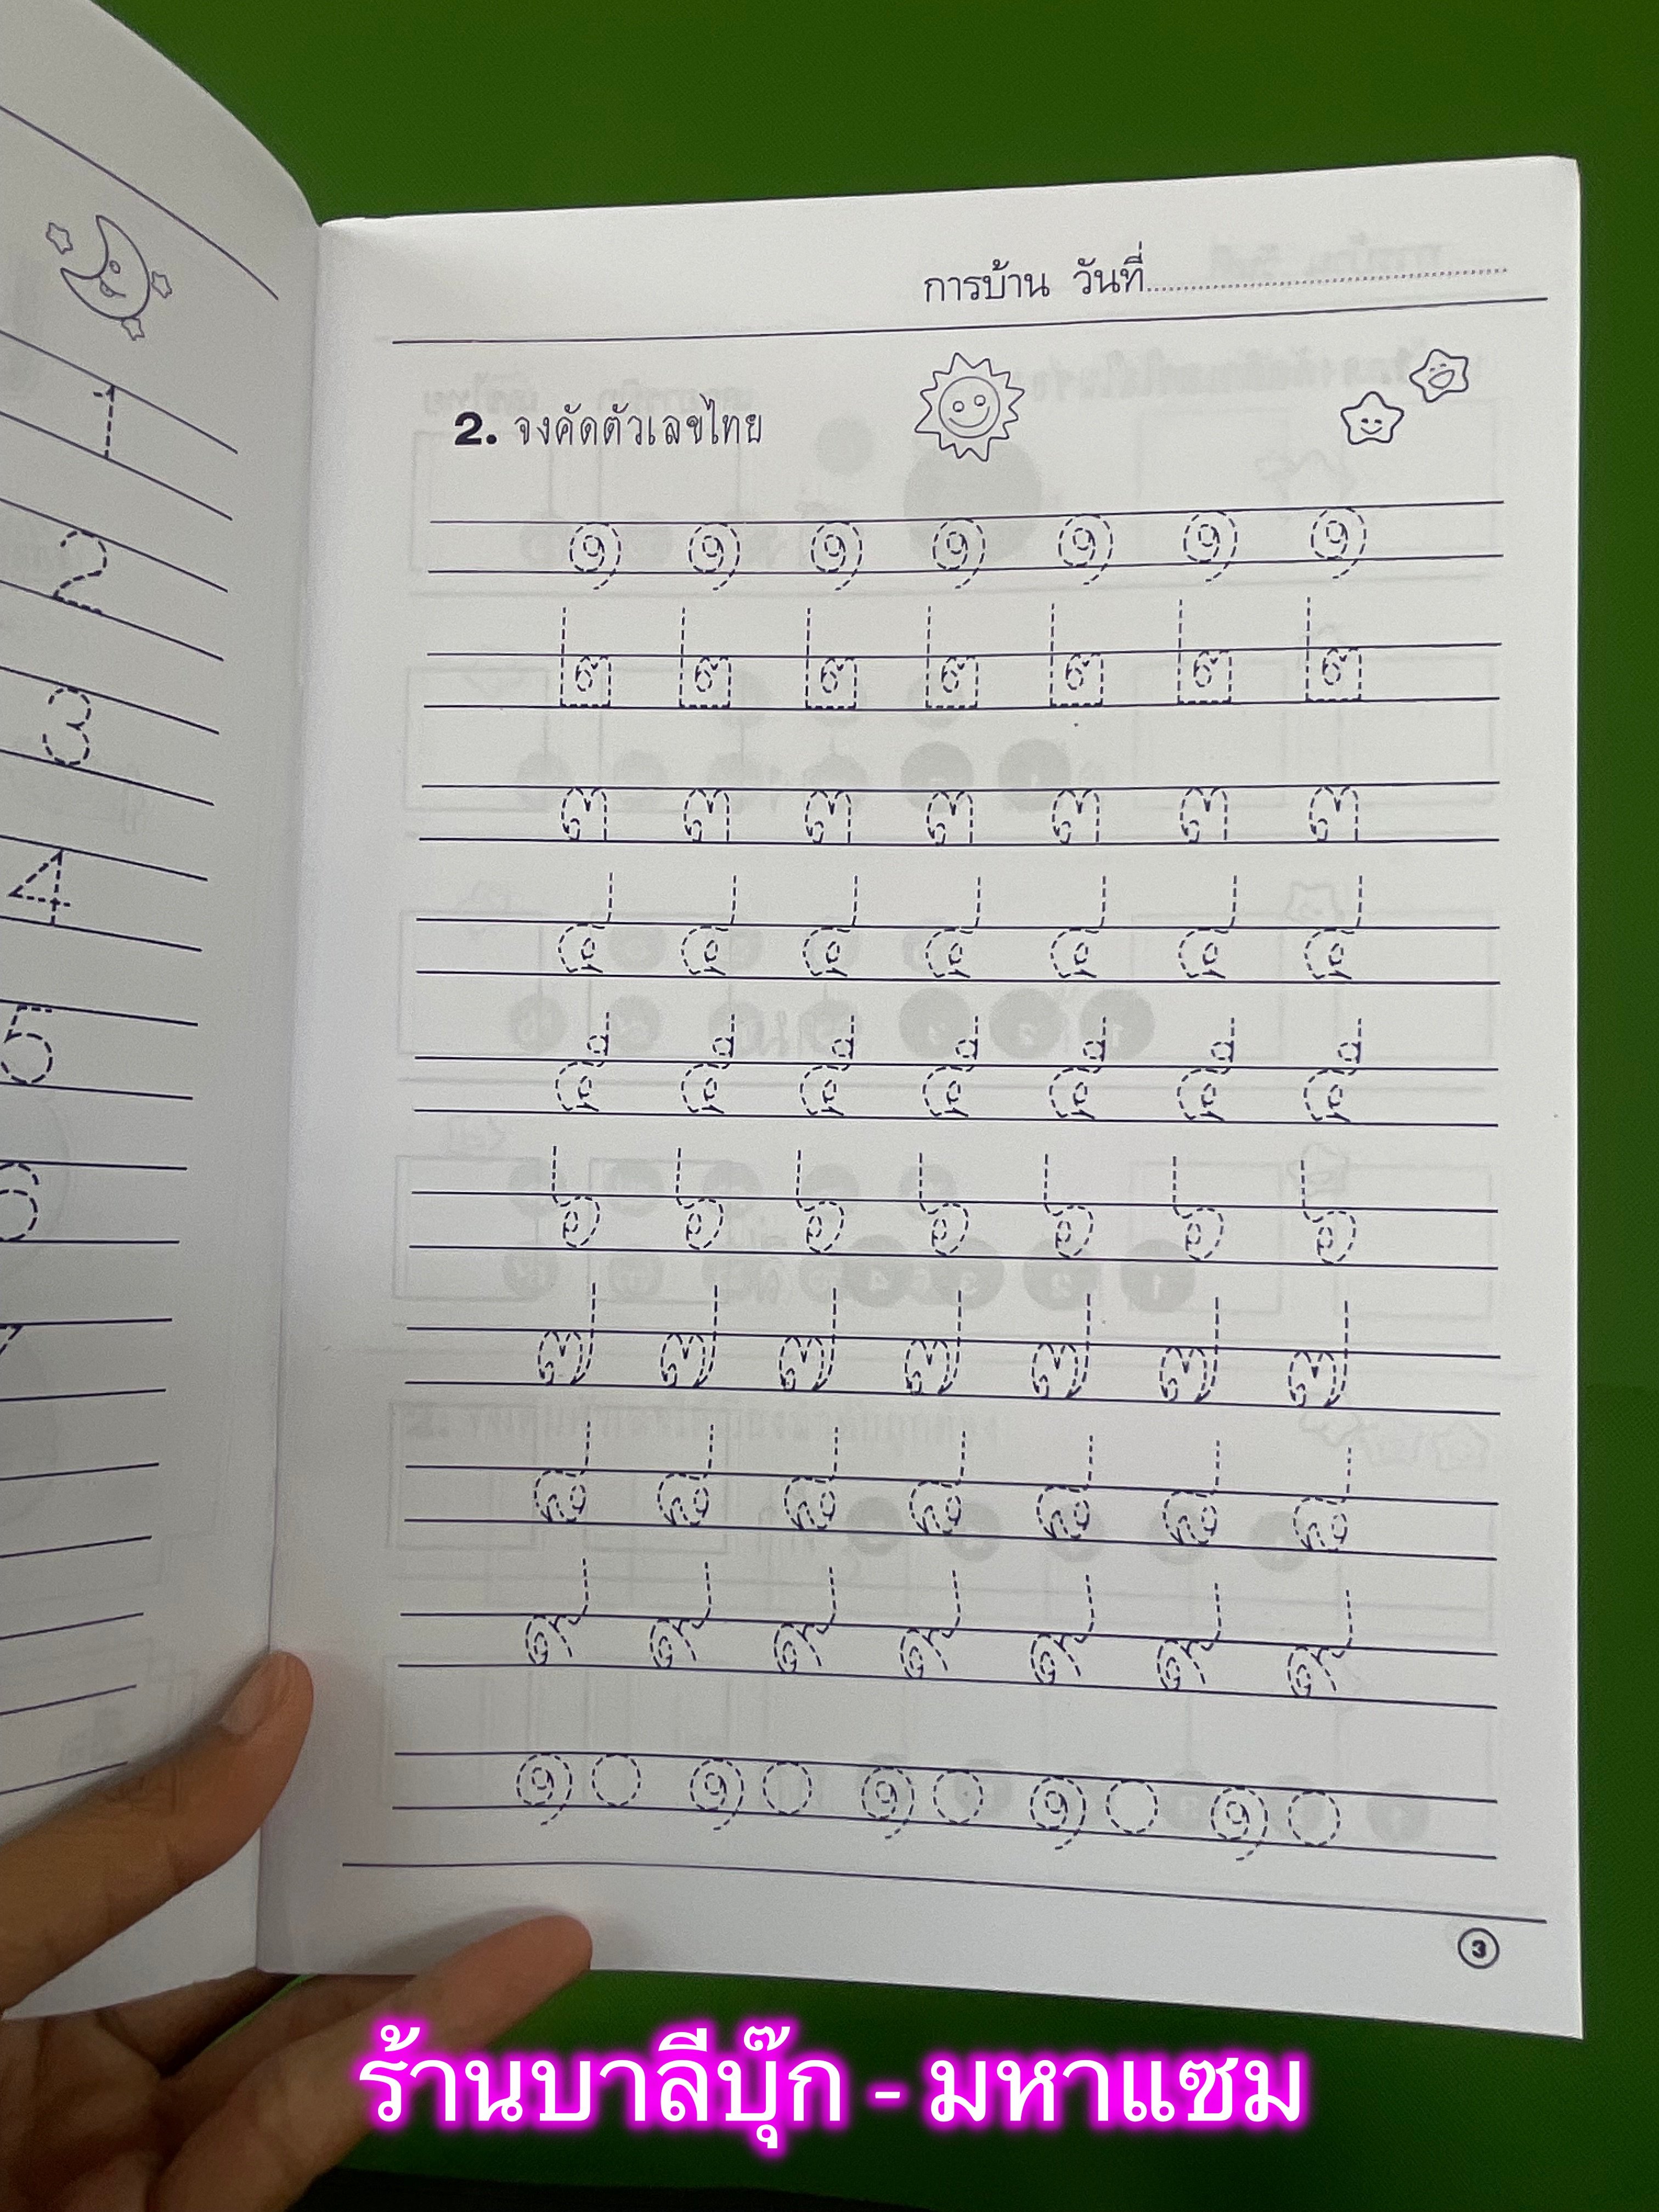 1
2
3
4
5
6
7
การบ้าน วันที่
2. จงคัดตัวเลขไทย
๑ ๑ ๑ ๑ ๑ ๑ ๑
๒ ๒ ๒ ๒ ๒ ๒ ๒
๓ ๓ ๓ ๓ ๓ ๓ ๓
๔ ๔ ๔ ๔ ๔ ๔ ๔
๕ ๕ ๕ ๕ ๕ ๕ ๕
๖ ๖ ๖ ๖ ๖ ๖ ๖
๗ ๗ ๗ ๗ ๗ ๗ ๗
๘ ๘ ๘ ๘ ๘ ๘ ๘
๙ ๙ ๙ ๙ ๙ ๙ ๙
๑๐ ๑๐ ๑๐ ๑๐ ๑๐
3
ร้านบาลีบุ๊ก - มหาแซม